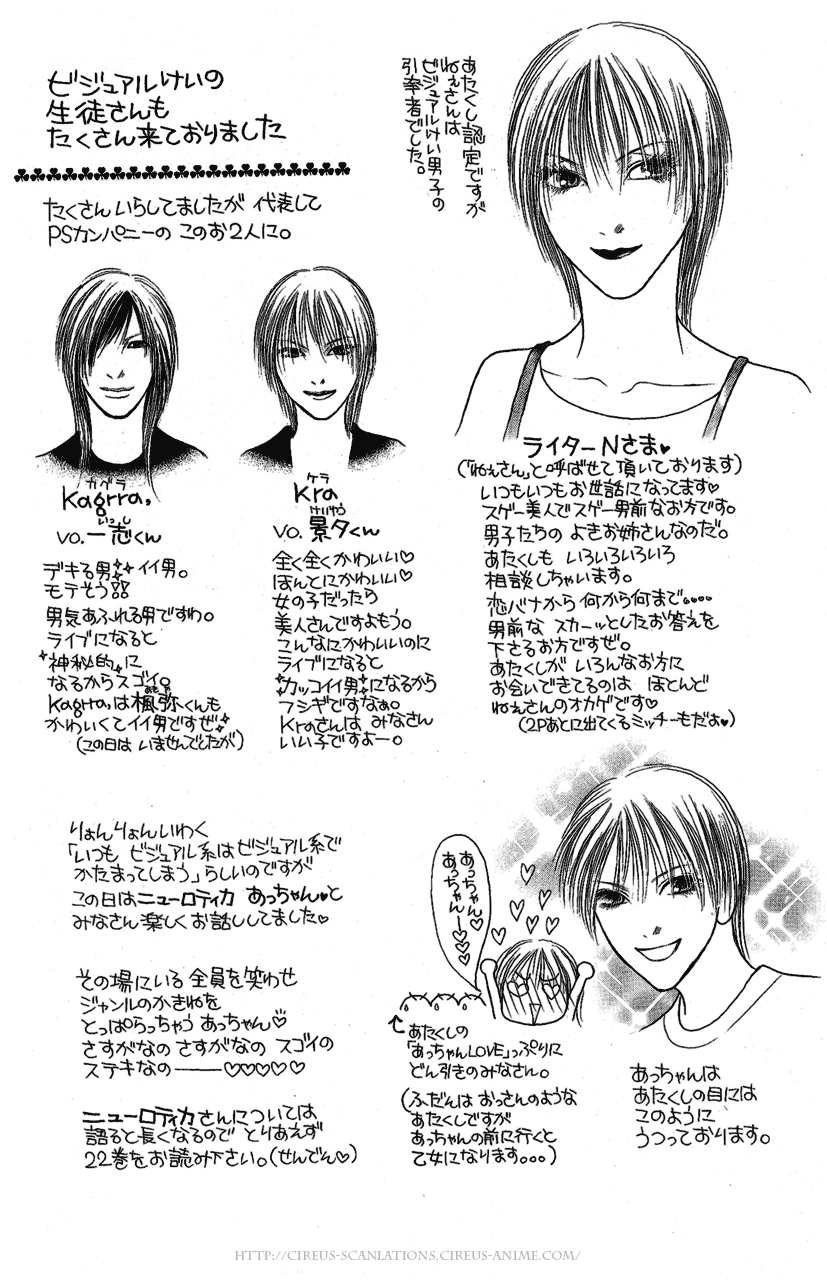 ビジュアルけいの
生徒さんも
たくさん来ておりました
あたくし認定ですが
ねぇさんは
ビジュアルけい男子の
引率者でした。
たくさんいらしてましたが 代表して
PSカンパニーの このお2人に。
カグラ
Kagrra,
いっし
vo.一志くん
デキる男 イイ男。
モテそう
男気あふれる男ですわ。
ライブになると
"神秘的"に
なるからスゴイ。
Kagrra,は楓弥くんも
かわいくてイイ男ですぜ
(この日は いませんでしたが)
ケラ
Kra
けいゆう
vo.景夕くん
全く全くかわいい♡
ほんとにかわいい♡
女の子だったら
美人さんですよもう。
こんなにかわいいのに
ライブになると
"カッコイイ男"になるから
フシギですなぁ。
Kraさんは みなさん
いい子ですよー。
ライターNさま♥
(「ねぇさん」と呼ばせて頂いております)
いつもいつもお世話になってます♡
スゲー美人でスゲー男前なお方です。
男子たちの よきお姉さんなのだ。
あたくしも いろいろいろいろ
相談しちゃいます。
恋バナから何から何まで。。。。
男前な スカーッとしたお答えを
下さるお方ですぜ。
あたくしが いろんなお方に
お会いできてるのは ほとんど
ねぇさんのオカゲです♡
(2Pあとに出てくるミッチーもだよ♥)
りょんりょんいわく
「いつも ビジュアル系はビジュアル系で
かたまってしまう」らしいのですが
この日はニューロティカ あっちゃん♥と
みなさん楽しくお話ししてました♡
その場にいる 全員を笑わせ
ジャンルのかきねを
とっぱらっちゃう あっちゃん♡
さすがなの さすがなの スゴイの
ステキなの———♡♡♡♡♡
ニューロティカさんについては
語ると長くなるので とりあえず
22巻をお読み下さい。(せんでん♡)
あっちゃん♡
あっちゃんー♡♡♡
あたくしの
「あっちゃんLOVE」っぷりに
どん引きのみなさん。
(ふだんは おっさんのような
あたくしですが
あっちゃんの前に行くと
乙女になります。。。)
あっちゃんは
あたくしの目には
このように
うつっております。
HTTP://CIREUS-SCANLATIONS.CIREUS-ANIME.COM/